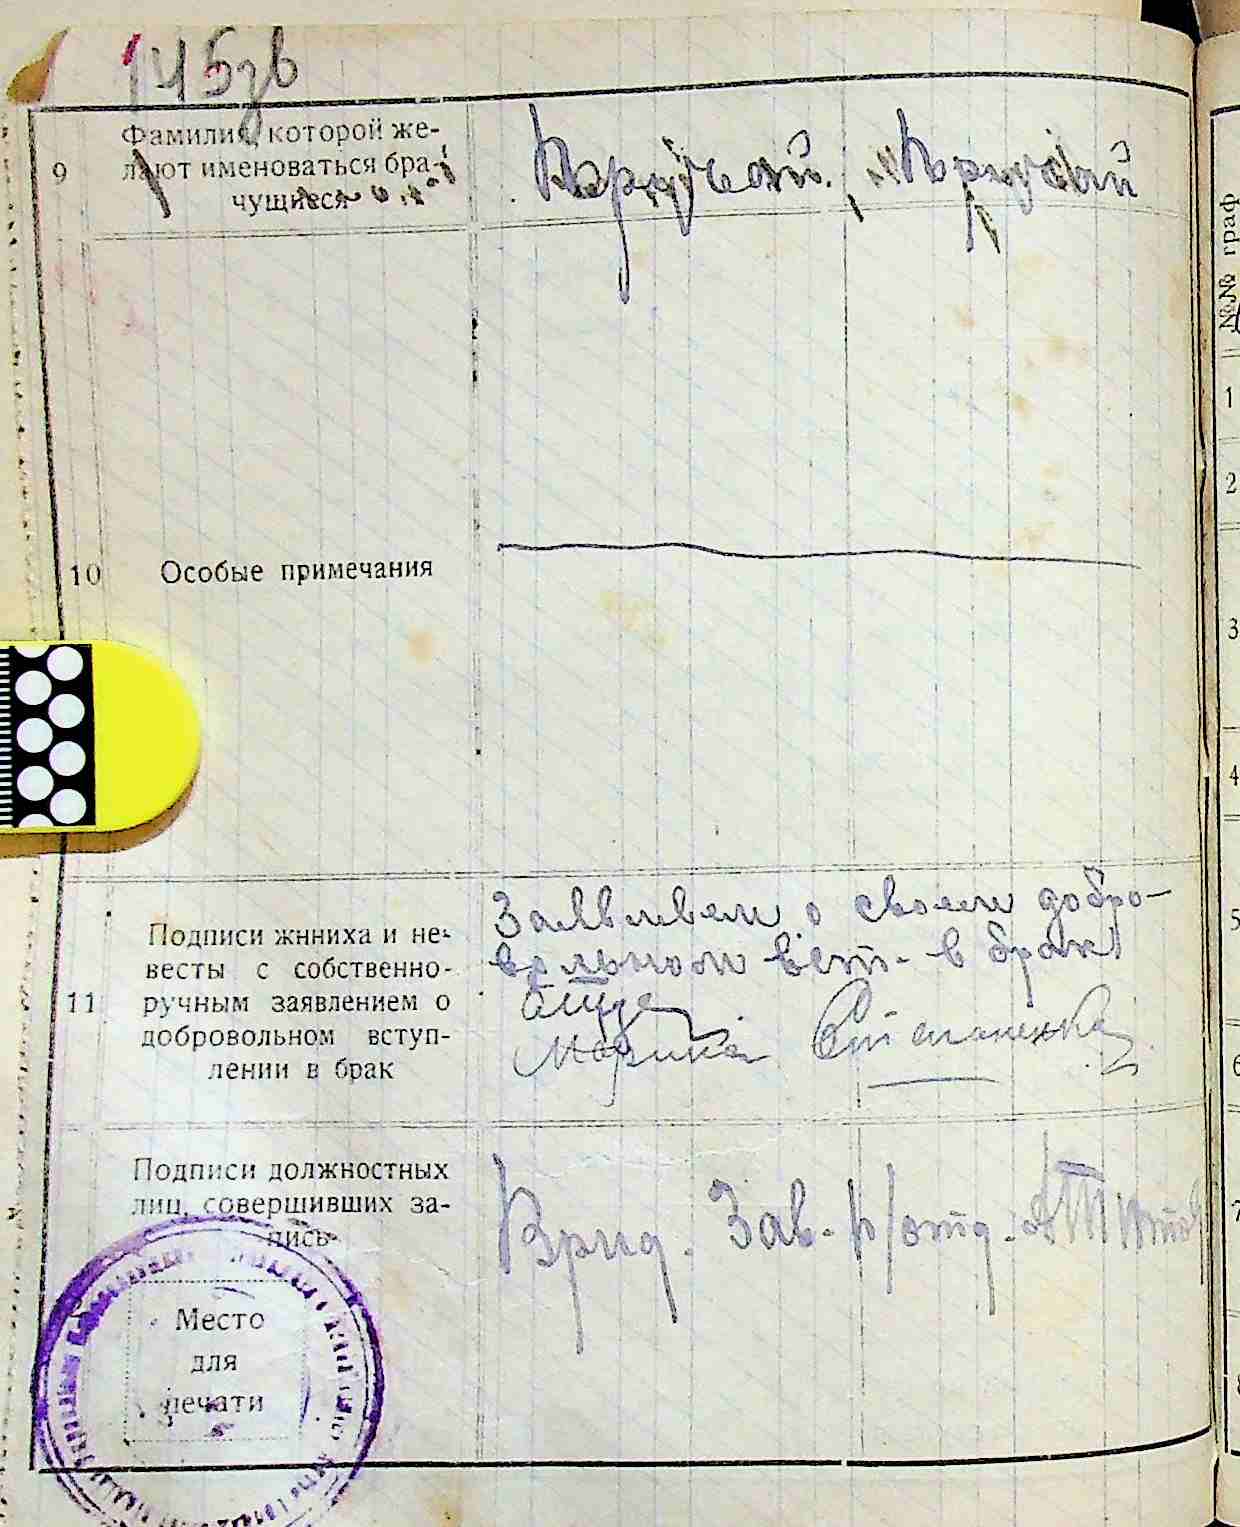 145зв
9
Фамилия, которой же-
лают именоваться бра-
чущиеся
10
Особые примечания
11
Подписи жнниха и не-
весты с собственно-
ручным заявлением о
добровольном вступ-
лении в брак
Заявляем о своем добро-
вольном вст. в брак
Степаненко
Подписи должностных
лиц, совершивших за-
пись
Врид. Зав. п/отд.
Место
для
печати
№№ граф
1
2
3
4
5
6
7
8